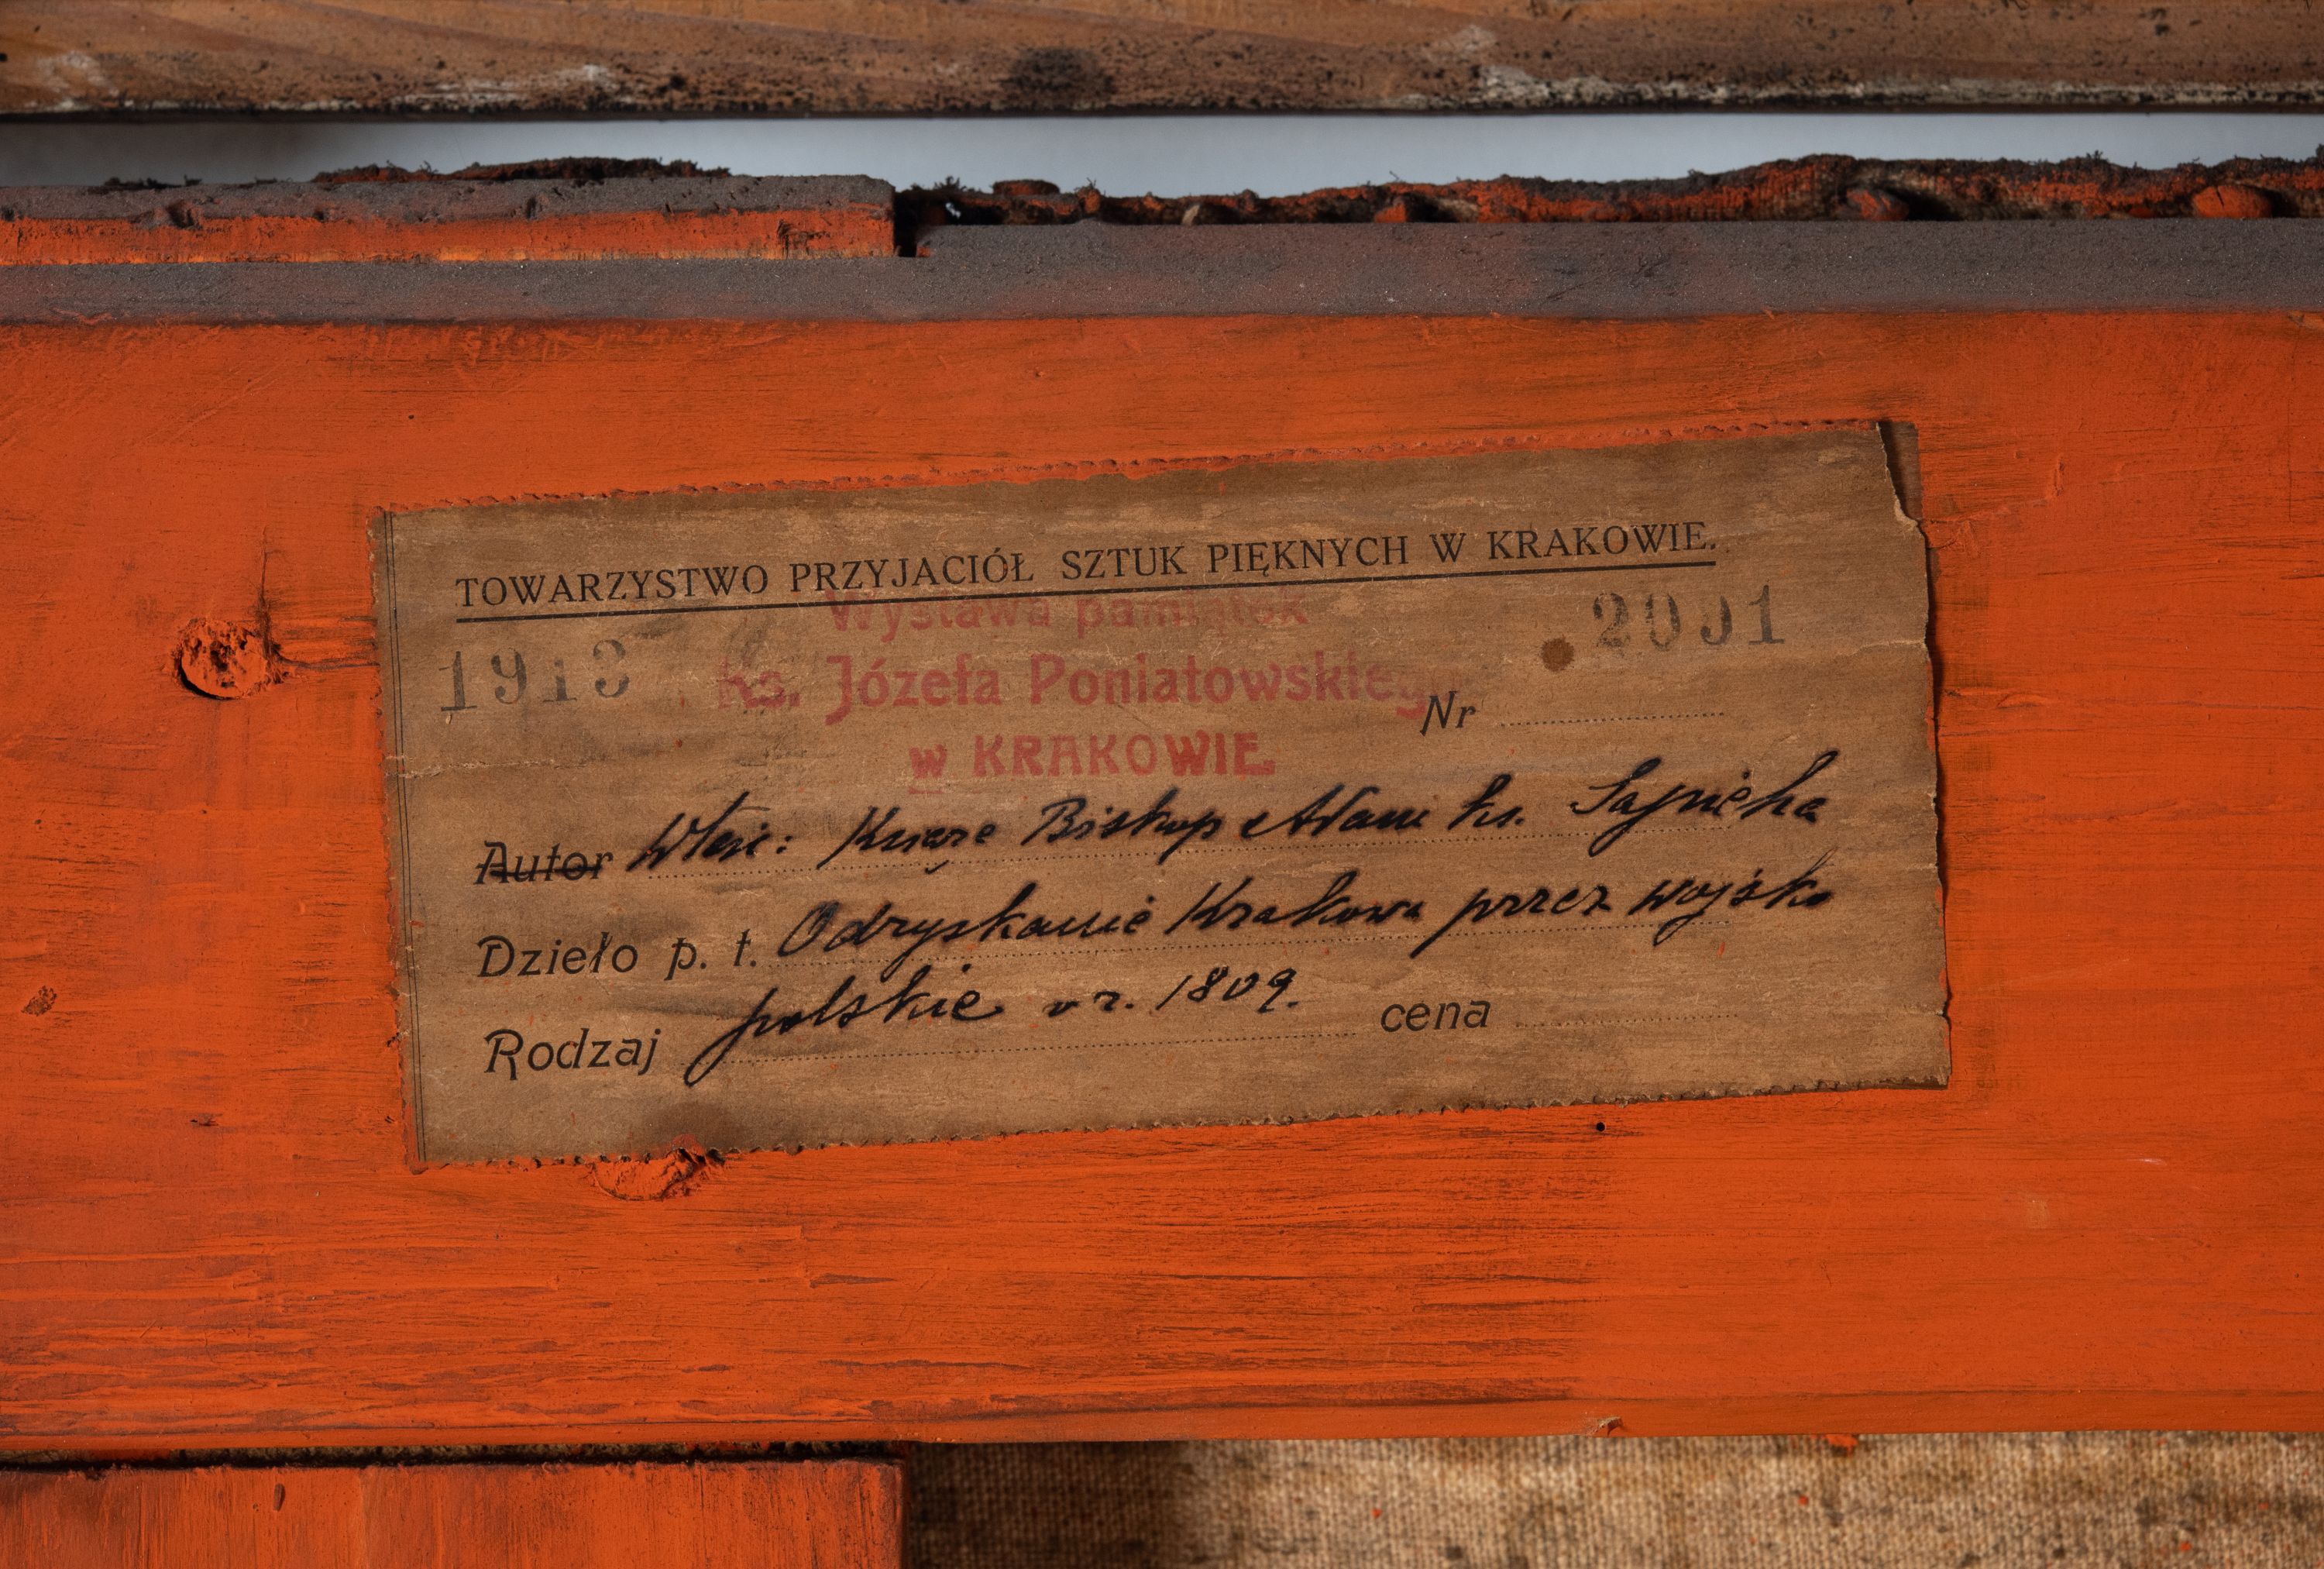 TOWARZYSTWO PRZYJACIÓŁ SZTUK PIĘKNYCH W KRAKOWIE.
Wystawa pamiątek
1913 ks. Józefa Poniatowskiego Nr 2091
w KRAKOWIE.
Autor Właśc: Książe Biskup Adam ks. Sapieha
Dzieło p. t. Odzyskanie Krakowa przez wojsko
polskie w r. 1809.
Rodzaj cena